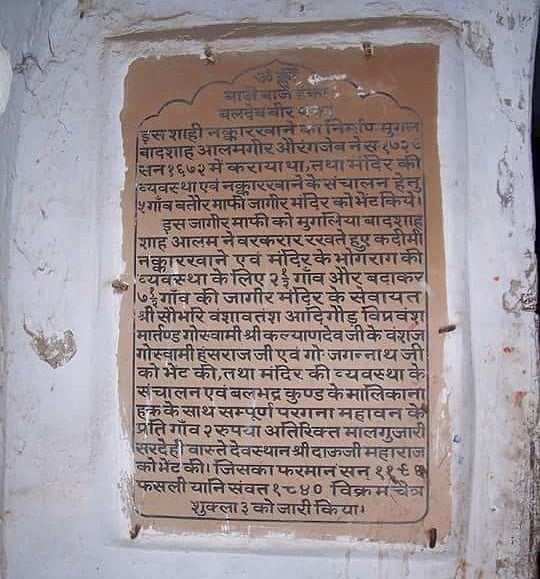 ॐ
बाजे बाजे डंका
बलदेव बीर
इस शाही नक्कारखाने का निर्माण मुगल
बादशाह आलमगीर औरंगजेब ने स १७२९
सन १६७२ में कराया था, तथा मंदिर की
व्यवस्था एवं नक्कारखाने के संचालन हेतु
५ गाँव बतौर माफी जागीर मंदिर को भेंट किये।
इस जागीर माफी को मुगलिया बादशाह
शाह आलम ने वरकरार रखते हुए कदीमी
नक्कारखाने एवं मंदिर के भोगराग की
व्यवस्था के लिए २½ गाँव और बढाकर
७½ गाँव की जागीर मंदिर के सेवायत
श्री सौभरि वंशावतंश आदिगौड़ विप्रवंश
मार्तण्ड गोस्वामी श्री कल्याणदेव जी के वंशज
गोस्वामी हंसराज जी एवं गो॰ जगन्नाथ जी
को भेंट की, तथा मंदिर की व्यवस्था के
संचालन एवं बलभद्र कुण्ड के मालिकाना
हक के साथ सम्पूर्ण परगना महावन के
प्रति गाँव २ रुपया अतिरिक्त मालगुजारी
सरदेही वास्ते देवस्थान श्री दाऊजी महाराज
को भेंट की। जिसका फरमान सन्
फसली यानि संवत १८४० विक्रम चैत्र
शुक्ला ३ को जारी किया।